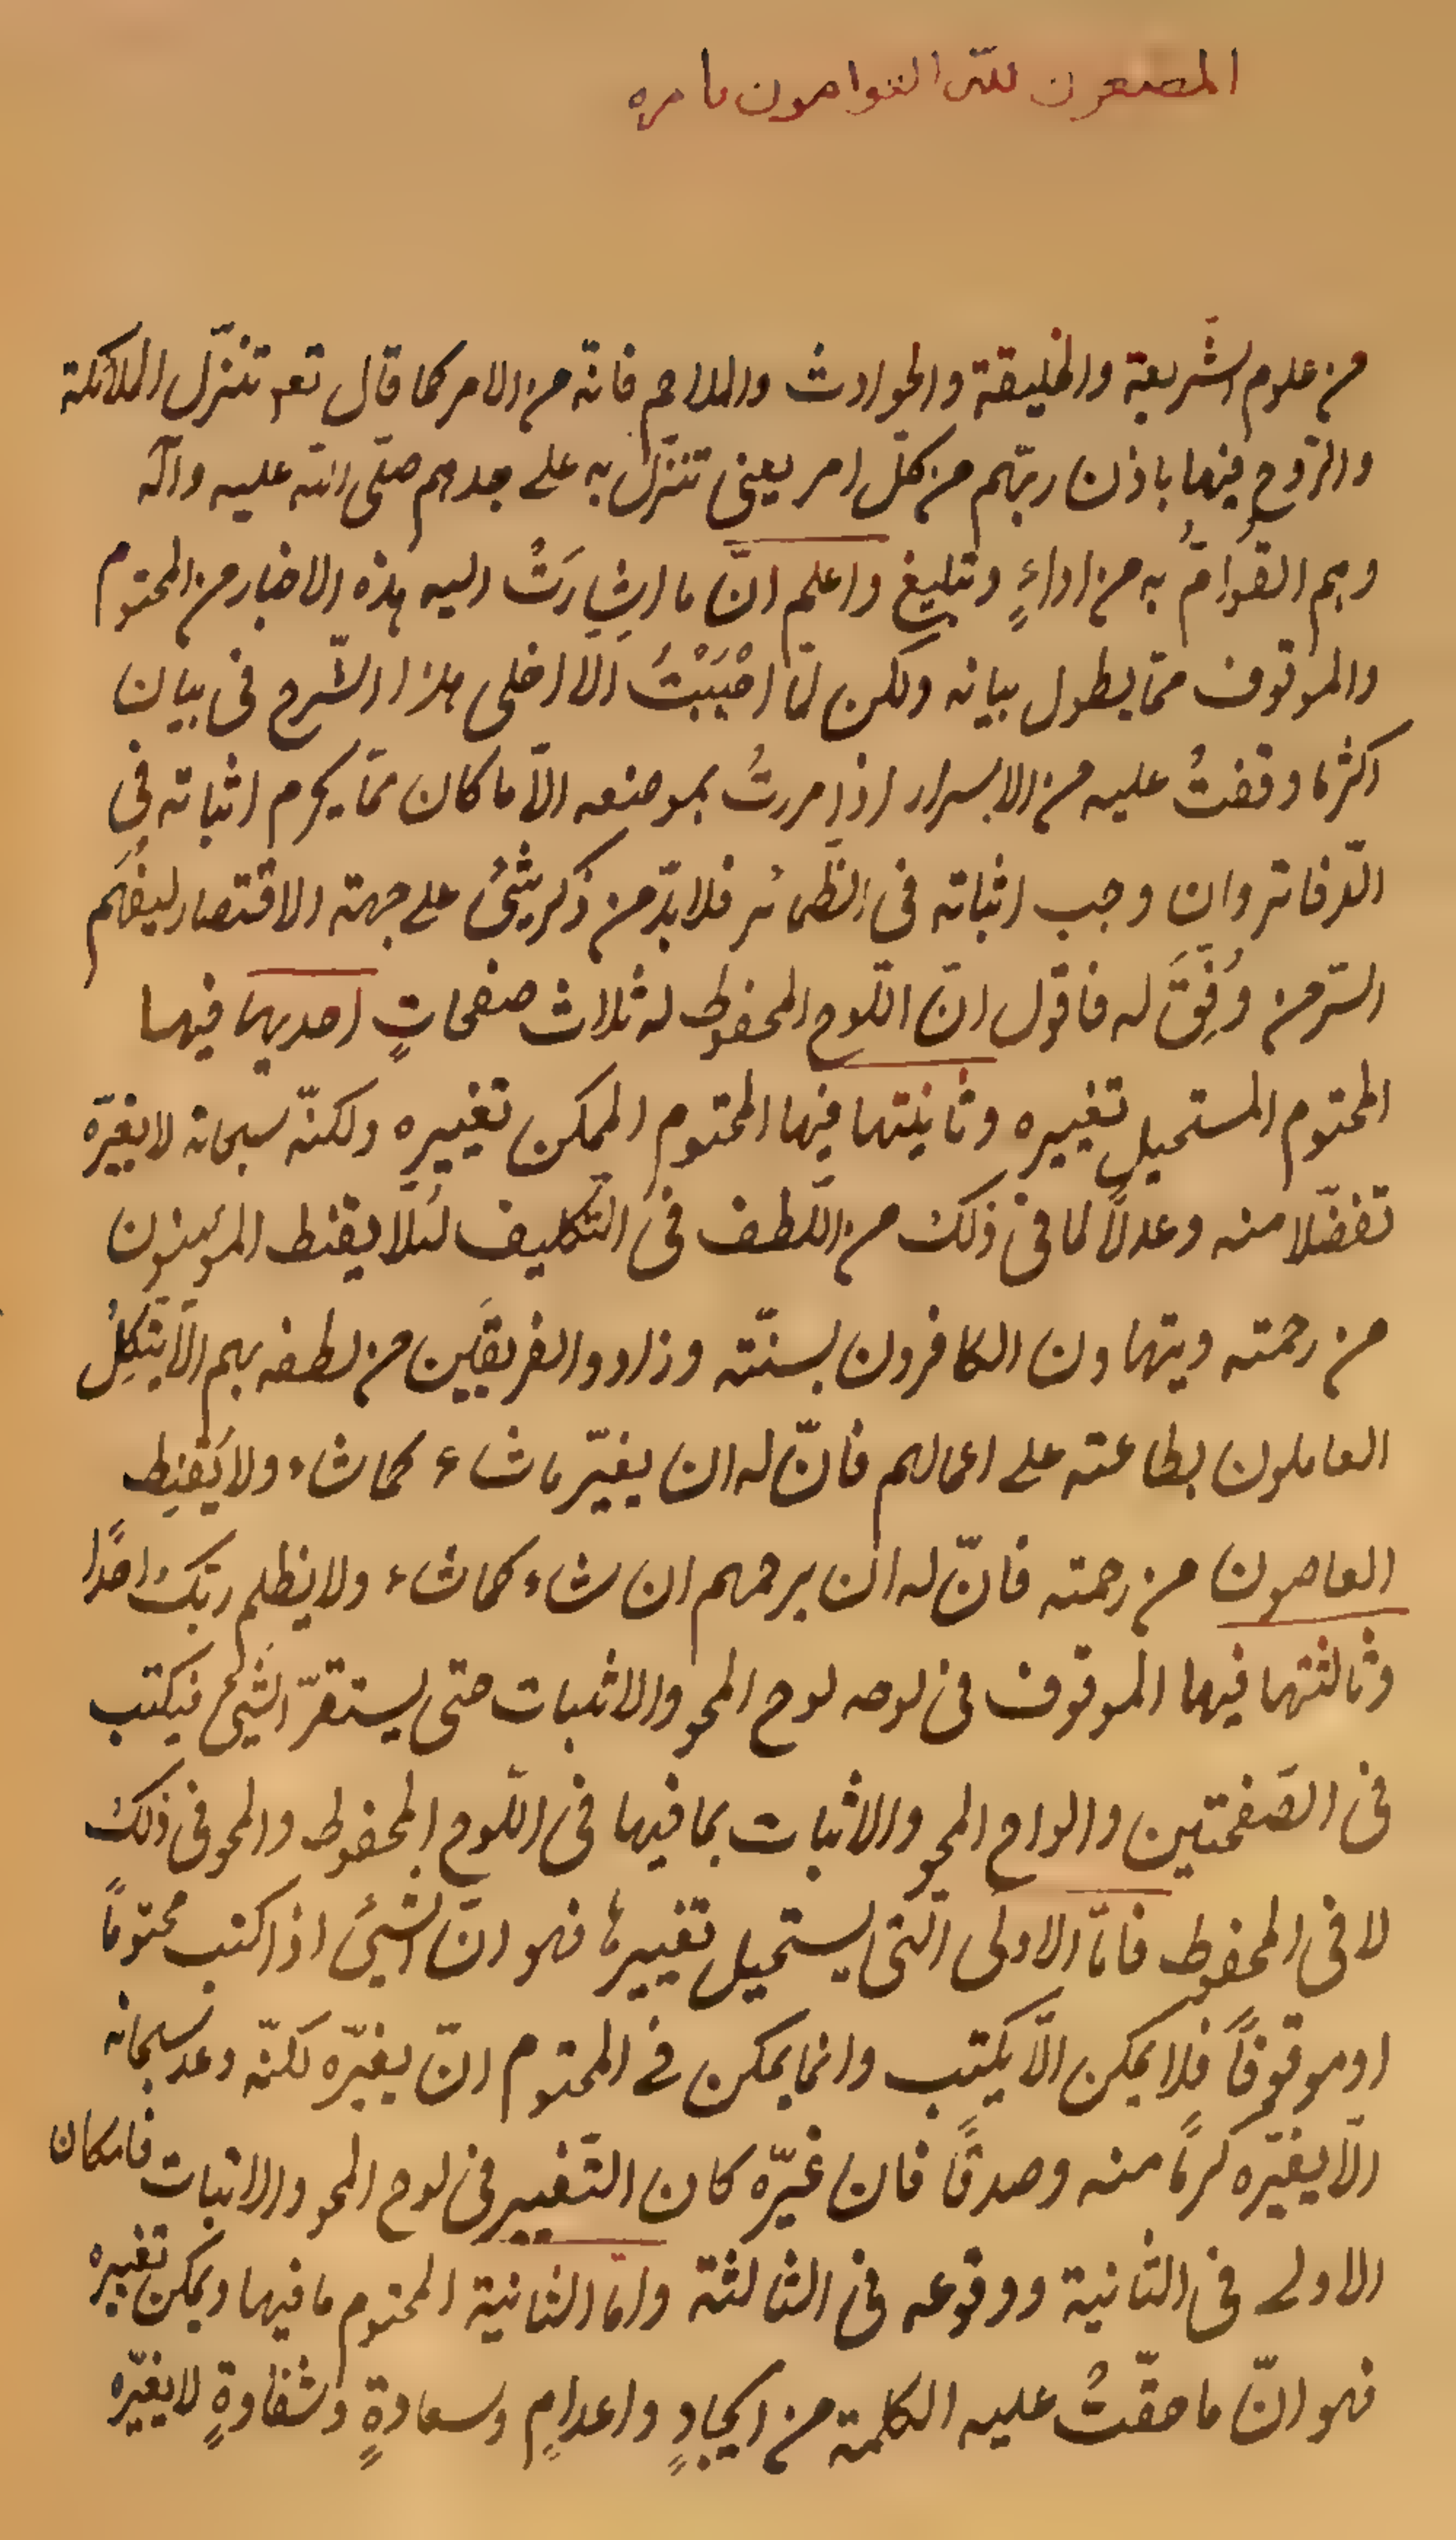 المطيعون لله القوامون بامره
من علوم الشّريعة والخليقة والحوادث والملاحم فانّه من الامر كما قال تعو تنزّل الملائكة
والرّوح فيها باذن ربّهم من كلّ امر يعنى تنزّل به على جدهم صلّى الله عليه وآله
وهم القوّامُ به من اداءٍ وتبليغ واعلم انّ ما اشارَتْ اليه هذه الاخبار من المحتوم
والموقوف ممّا يطول بيانه ولكن لمّا احْبَبْتُ الّا اخلى هذا الشّرح فى بيان
اكثر ما وقفتُ عليه من الاسرار اذا مررتُ بموضعه الّا ما كان ممّا يحرم اثباته فى
الدّفاتر وان وجب اثباته فى الضّمائر فلا بدّ من ذكر شىءٍ على جهة الاقتصار ليفهَم
السّر من وُفِّقَ له فاقول انّ اللّوح المحفوظ له ثلاث صفحاتٍ احديها فيها
المحتوم المستحيل تغييره وثانيتها فيها المحتوم الممكن تغييره ولكنّه سبحانه لا يغيّره
تفضّلا منه وعدلاً لما فى ذلك من اللّطف فى التّكليف لئلّا يقنط المؤمنون
من رحمته ويتهاون الكافرون بسنّته وزاد والفريقَين من لطفه بهم الّا يتّكِلُ
العاملون بطاعته على اعمالهم فانّ له ان يغيّر ما شاء كما شاء ولا يَقنِط
العاصون من رحمته فانّ له ان يرحمهم ان شاء كما شاء ولا يظلم ربّك احدًا
وثالثتها فيها الموقوف فى لوحه لوح المحو والاثبات حتى يستقرّ الشّىء فيكتب
فى الصّفحتين والواح المحو والاثبات بما فيها فى اللّوح المحفوظ والمحو فى ذلك
لا فى المحفوظ فامّا الاولى الّتى يستحيل تغييرها فهو انّ الشّىء اذا كتب محتومًا
او موقوفًا فلا يمكن الّا يكتب وانما يمكن فى المحتوم انّ يغيّره لكنّه وعد سبحانه
الّا يغيّره كرمًا منه وصدقًا فان غيّره كان التّغيير فى لوح المحو والاثبات فامكان
الاولى فى الثّانية ووقوعه فى الثالثة وامّا الثانية المحتوم ما فيها ويمكن تغييره
فهو انّ ما حقّتْ عليه الكلمة من ايجادٍ واعدامٍ وسعادةٍ وشقاوةٍ لا يغيّره